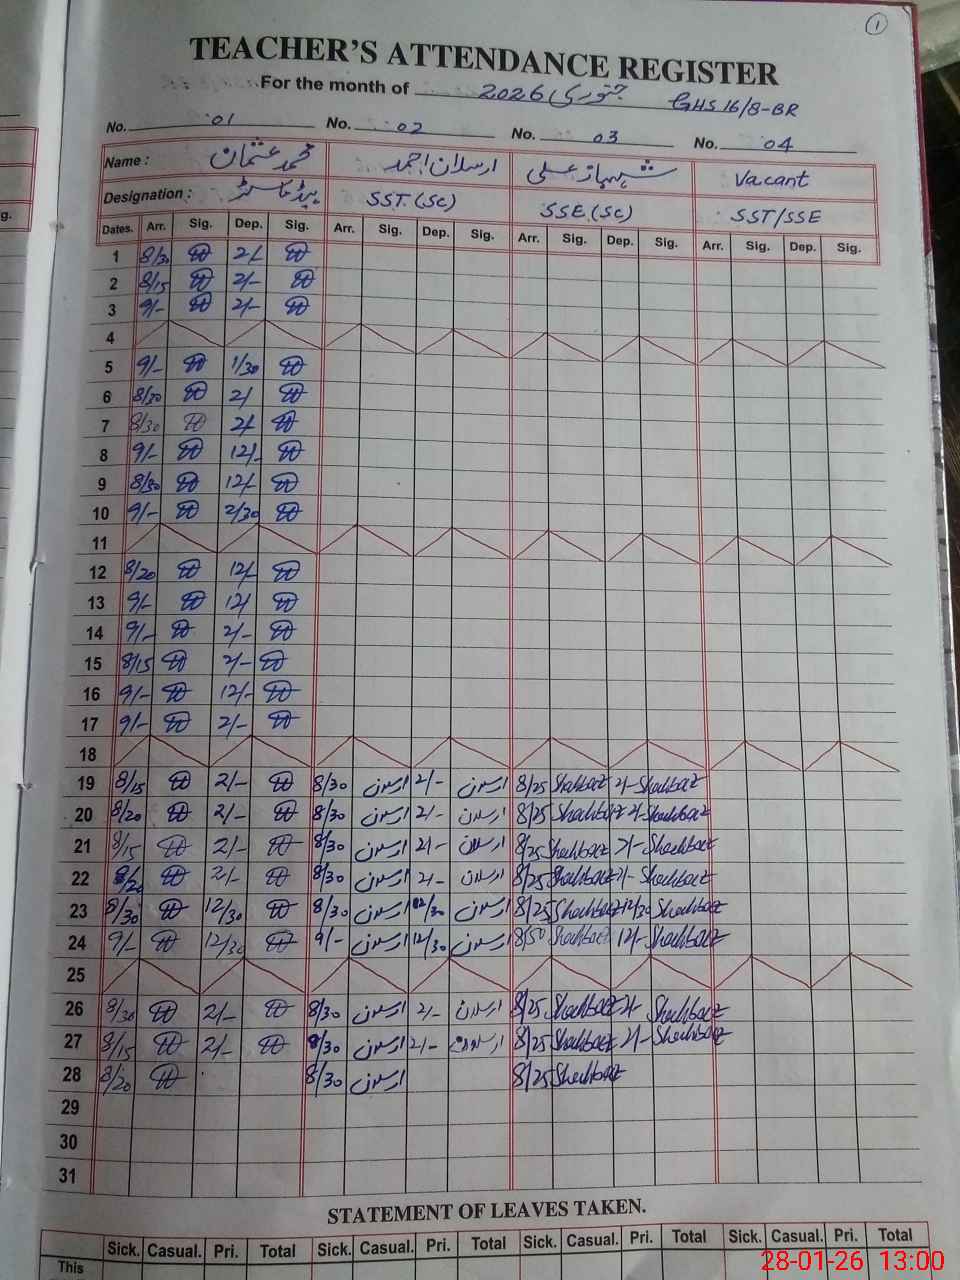 1
TEACHER'S ATTENDANCE REGISTER
For the month of جنوری 2026 GHS 16/8-BR
No. 01 No. 02 No. 03 No. 04
Name : محمد عثمان ارسلان احمد شہباز علی Vacant
Designation : ہیڈ ماسٹر SST (SC) SSE (SC) SST/SSE
Dates. Arr. Sig. Dep. Sig. Arr. Sig. Dep. Sig. Arr. Sig. Dep. Sig. Arr. Sig. Dep. Sig.
1 8/30 2/-
2 8/15 2/-
3 9/- 2/-
4
5 9/- 1/30
6 8/30 2/
7 8/30 2/
8 9/- 12/-
9 8/30 12/-
10 9/- 2/30
11
12 8/20 12/-
13 9/- 12/
14 9/- 2/-
15 8/15 2/-
16 9/- 12/-
17 9/- 2/-
18
19 8/15 2/- 8/30 ارسلان 2/- ارسلان 8/25 Shahbaz 2/- Shahbaz
20 8/20 2/- 8/30 ارسلان 2/- ارسلان 8/25 Shahbaz 2/- Shahbaz
21 8/15 2/- 8/30 ارسلان 2/- ارسلان 8/25 Shahbaz 2/- Shahbaz
22 8/20 2/- 8/30 ارسلان 2/- ارسلان 8/25 Shahbaz 2/- Shahbaz
23 8/30 12/30 8/30 ارسلان 12/30 ارسلان 8/25 Shahbaz 12/30 Shahbaz
24 9/- 12/30 9/- ارسلان 12/30 ارسلان 8/50 Shahbaz 12/- Shahbaz
25
26 8/30 2/- 8/30 ارسلان 2/- ارسلان 8/25 Shahbaz 2/- Shahbaz
27 8/15 2/- 8/30 ارسلان 2/- ارسلان 8/25 Shahbaz 2/- Shahbaz
28 8/20 8/30 ارسلان 8/25 Shahbaz
29
30
31
STATEMENT OF LEAVES TAKEN.
Sick. Casual. Pri. Total Sick. Casual. Pri. Total Sick. Casual. Pri. Total Sick. Casual. Pri. Total
This
28-01-26 13:00